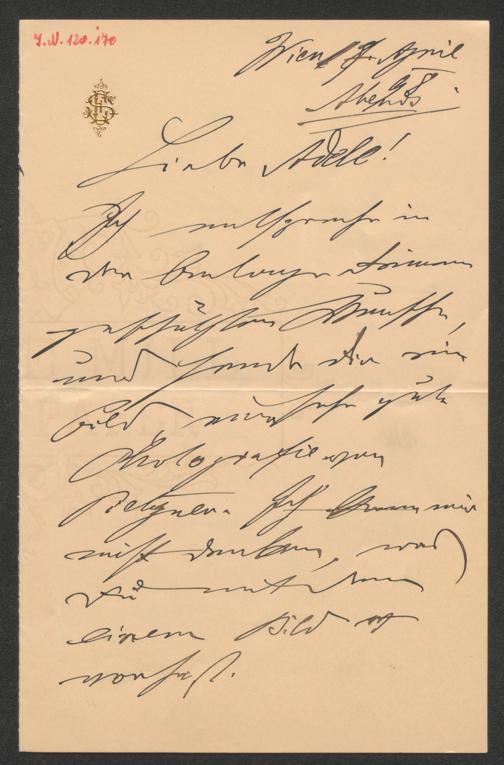 J.N. 120.170
Wien, 7. April
98
Abends
Liebe Adele!
Ich entspreche in
der Beilage Deinem
geschätzten Wunsche,
und sende Dir ein
Bild eine sehr gute
Photografie von
Pietzner. Ich kann mir
nicht denken, was
Du mit dem
einem Bild
vorhast.